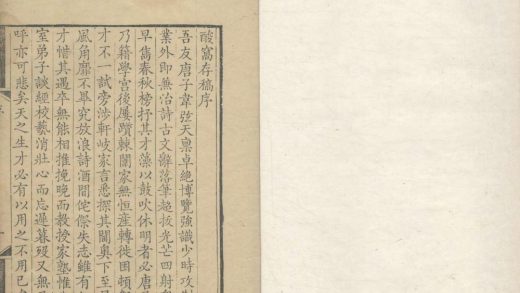 酸窩存稿序
吾友唐子韋弦天稟卓絶博覽強識少時攻
業外即兼治詩古文辭落筆超拔光芒四射
早雋春秋榜抒其才藻以鼓吹休明者必唐
乃籍學宮後屢躓棘闈家無恒產轉徙困頓
才不一試旁涉軒岐家言悉探其閫奧下至
風角靡不畢究放浪詩酒間侘傺失志雖有
才惜其遇卒無能相推挽晚而設授家塾惟
室弟子談經校藝消壯心而忘遲暮歿又無
呼亦可悲矣天之生才必有以用之不用已